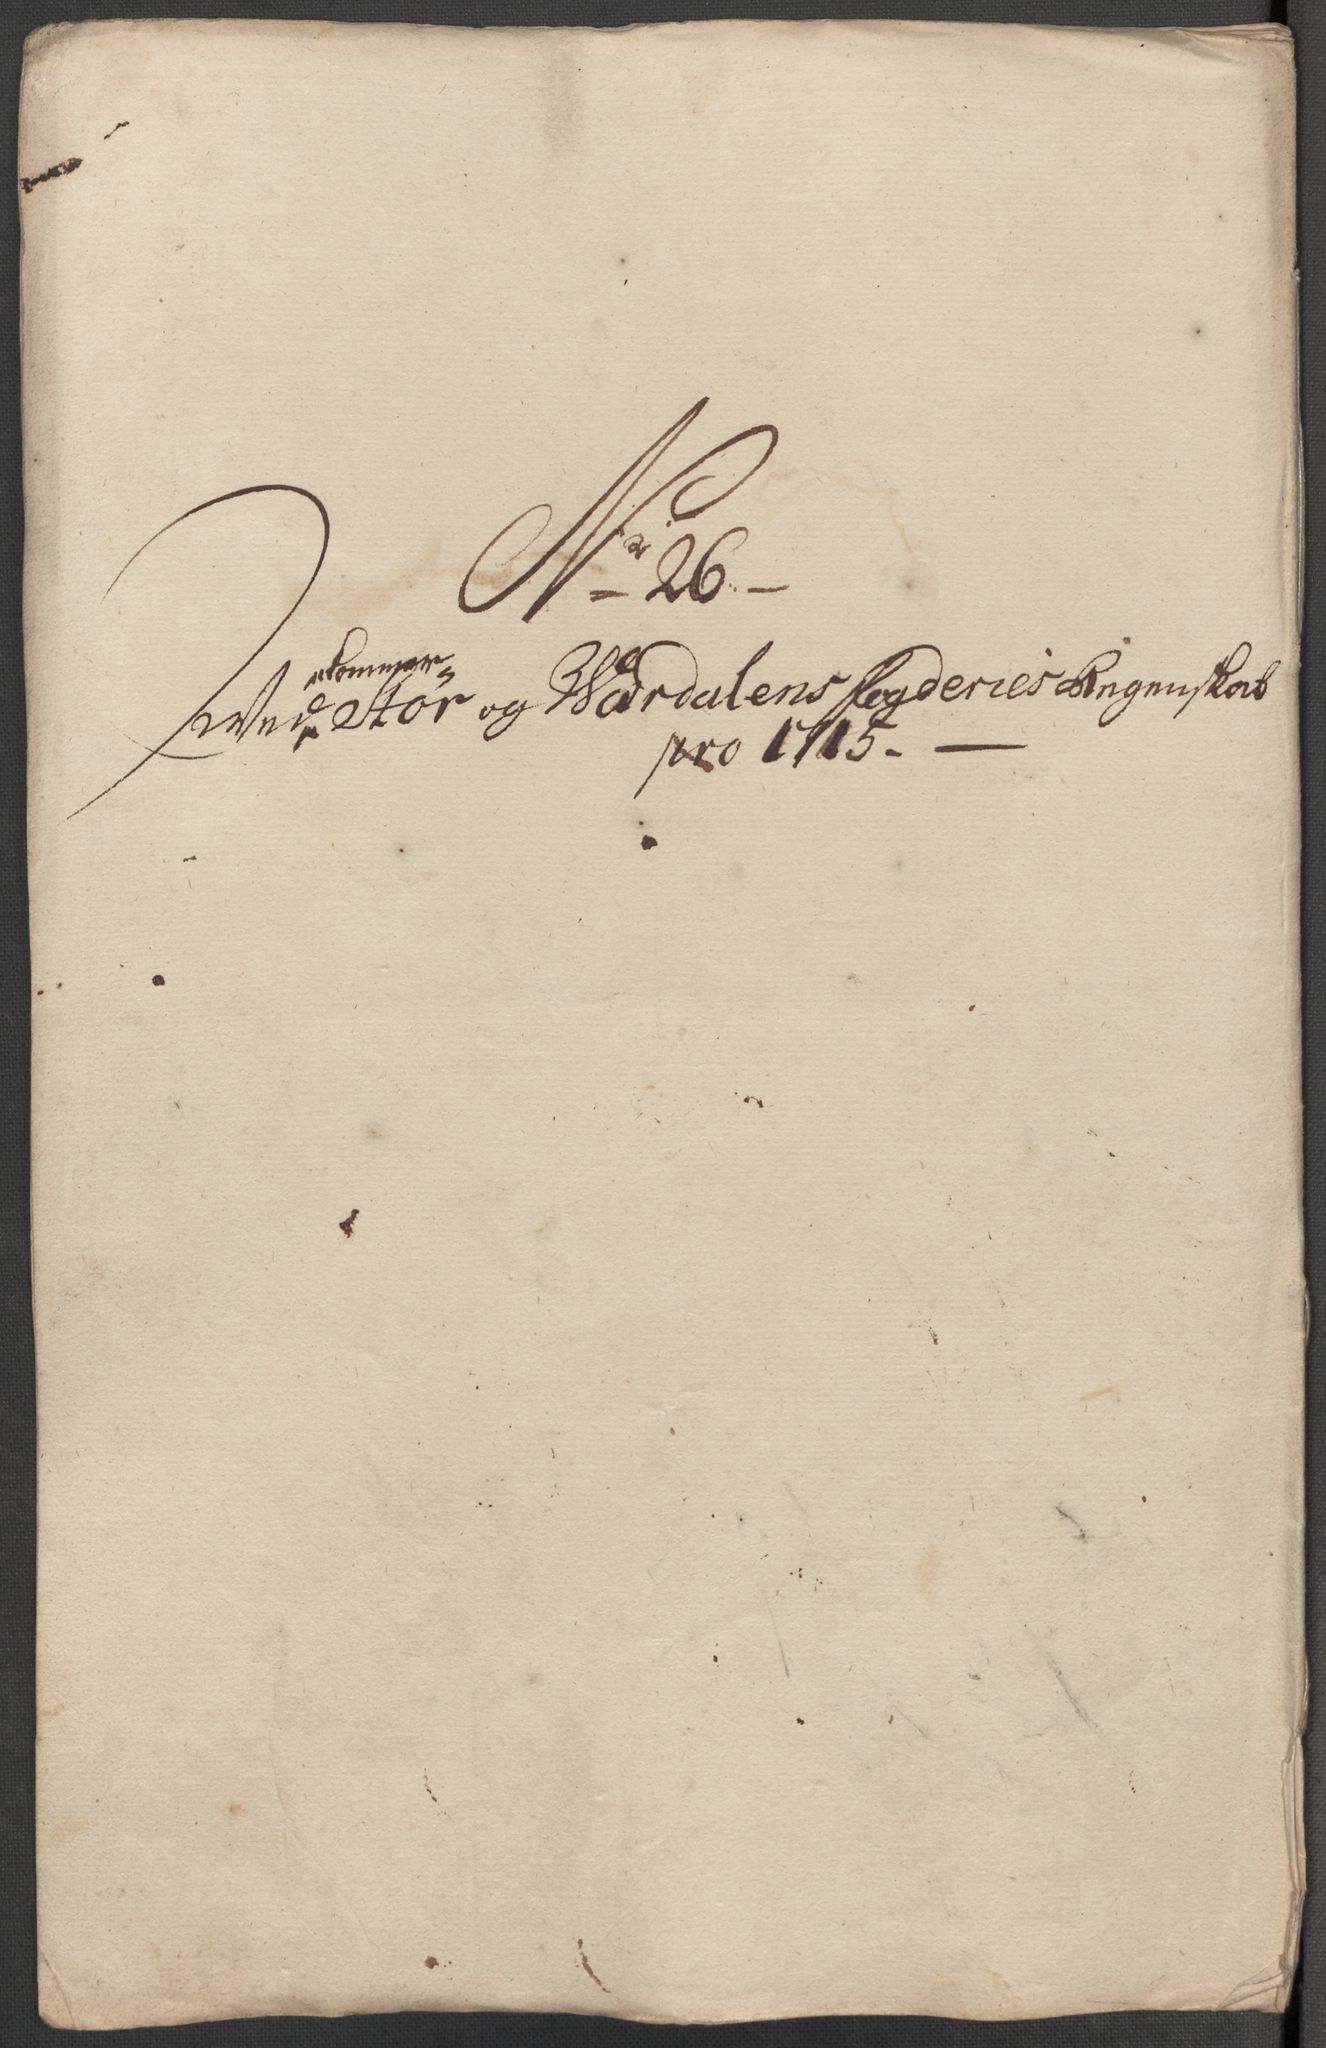 No 26
Vedkommer Stør og Wærdalens fogderies Regenskab
pro 1715.